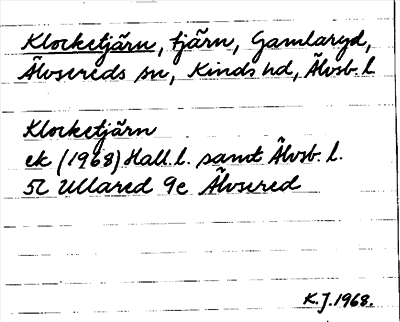 Klocketjärn, tjärn, Gamlaryd,
Älvsereds sn, Kinds hd, Älvsb. l
Klocketjärn
ek (1968) Hall. l. samt Älvsb. l.
5C Ullared 9e Älvsered
K.J. 1968.